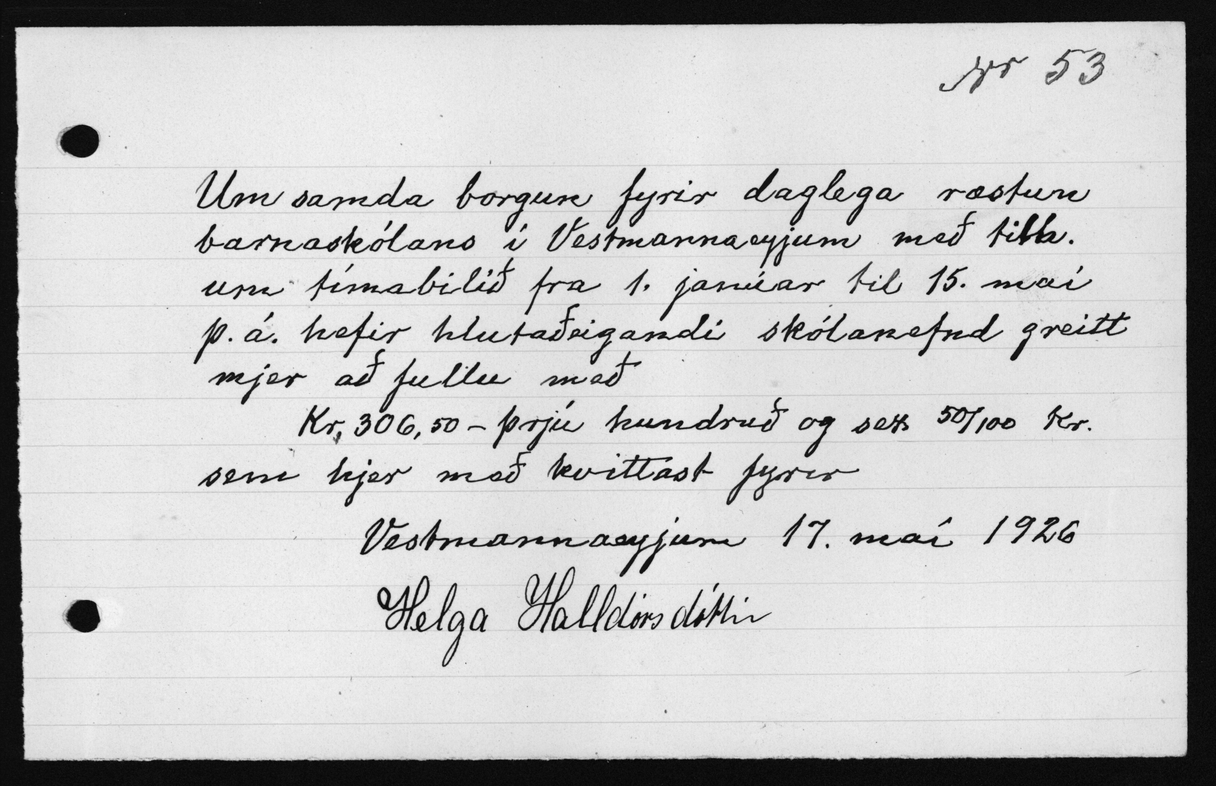 Nr 53
Um samda borgun fyrir daglega ræstun
barnaskólans í Vestmannaeyjum með tilh.
um tímabilið fra 1. janúar til 15. maí
þ. á. hefir hlutaðeigandi skólanefnd greitt
mjer að fullu með
Kr. 306,50 - þrjú hundruð og sex 50/100 Kr.
sem hjer með kvittast fyrir
Vestmannaeyjum 17. maí 1926
Helga Halldórsdóttir